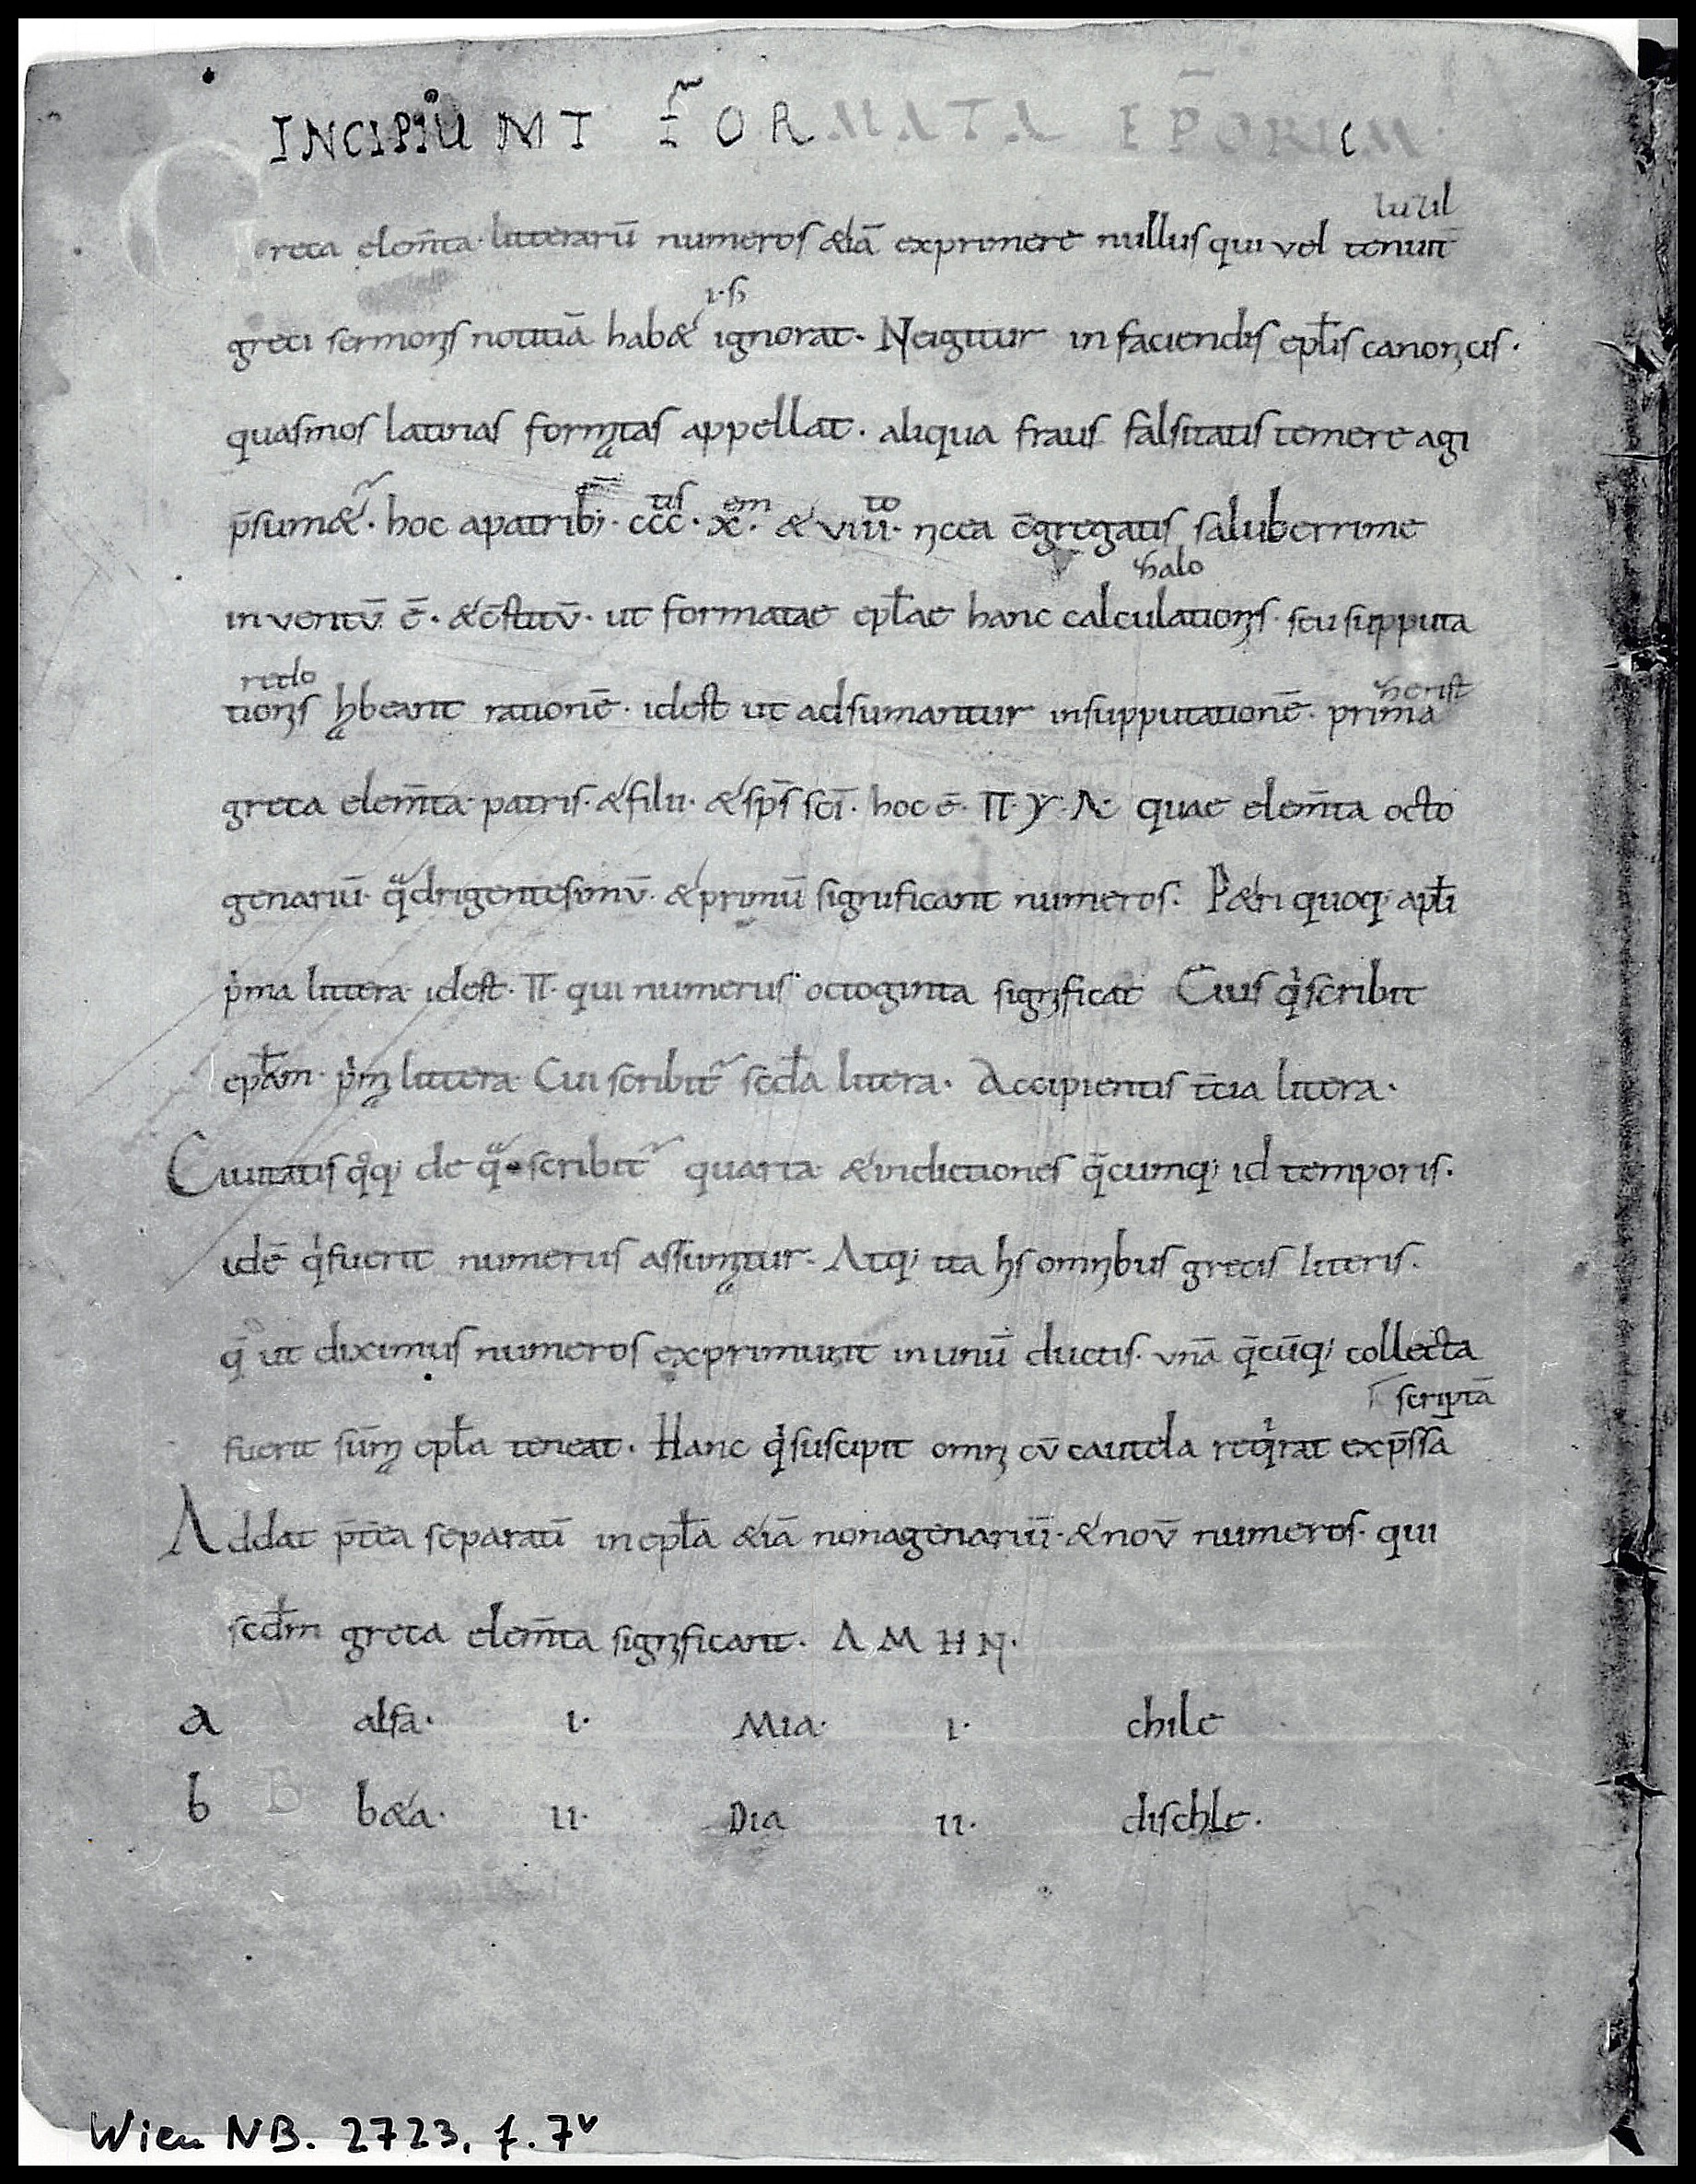 INCIPIUNT FORMATA EP̄ORUM
luzil
Greca elem̄ta· litterarū numeros &iā exprimere nullus qui vel tenuit̄
i·ſh
greci sermonis notitiā hab& ignorat· Neigitur in faciendis ep̄lis canonicis·
quasmos latinas formatas appellat· aliqua fraus falsitatis temere agi
p̄sum&r· hoc apatrib;· ccc tis· x em· & viii to· nicea c̄gregatis saluberrime
halo
inventū ē· &c̄stitū· ut formatae ep̄lae hanc calculationis· seu supputa
redo herist
tionis habeant rationē· idest ut adsumantur insupputationē· prima
greca elem̄ta· patris· &filii· &sp̄s sc̄i· hoc ē· Π· Y· Α· quae elem̄ta octo
genariū· qadrigentesimū· &primū significant numeros· P&ri quoq; ap̄li
pima littera· idest· Π· qui numerus octoginta significat Eius qi scribit
ep̄lam· pima littera· Cui scribitr sc̄da litera· Accipientis t̄cia litera·
Civitatis qoq; de qa scribitr quarta· &indictiones q̄cumq; id temporis·
idē qi fuerit numerus assumatur· Atq; ita his omnibus grecis literis·
q̄ ut diximus numeros exprimunt in unū ductis· unā q̄cūq; collecta
scriptā
fuerit sūma ep̄la teneat· Hanc qi suscipit omni cū cautela reqirat exp̄ssā
Addat p̄t̄ea separatī in ep̄la &iā nonagenariū· &novē numeros· qui
sc̄dm greca elem̄ta significant· Α Μ Η Ν·
a alfa· i· Mia· i· chile
b B b&a· ii· Dia ii· dischle·
Wien NB. 2723, f. 7v